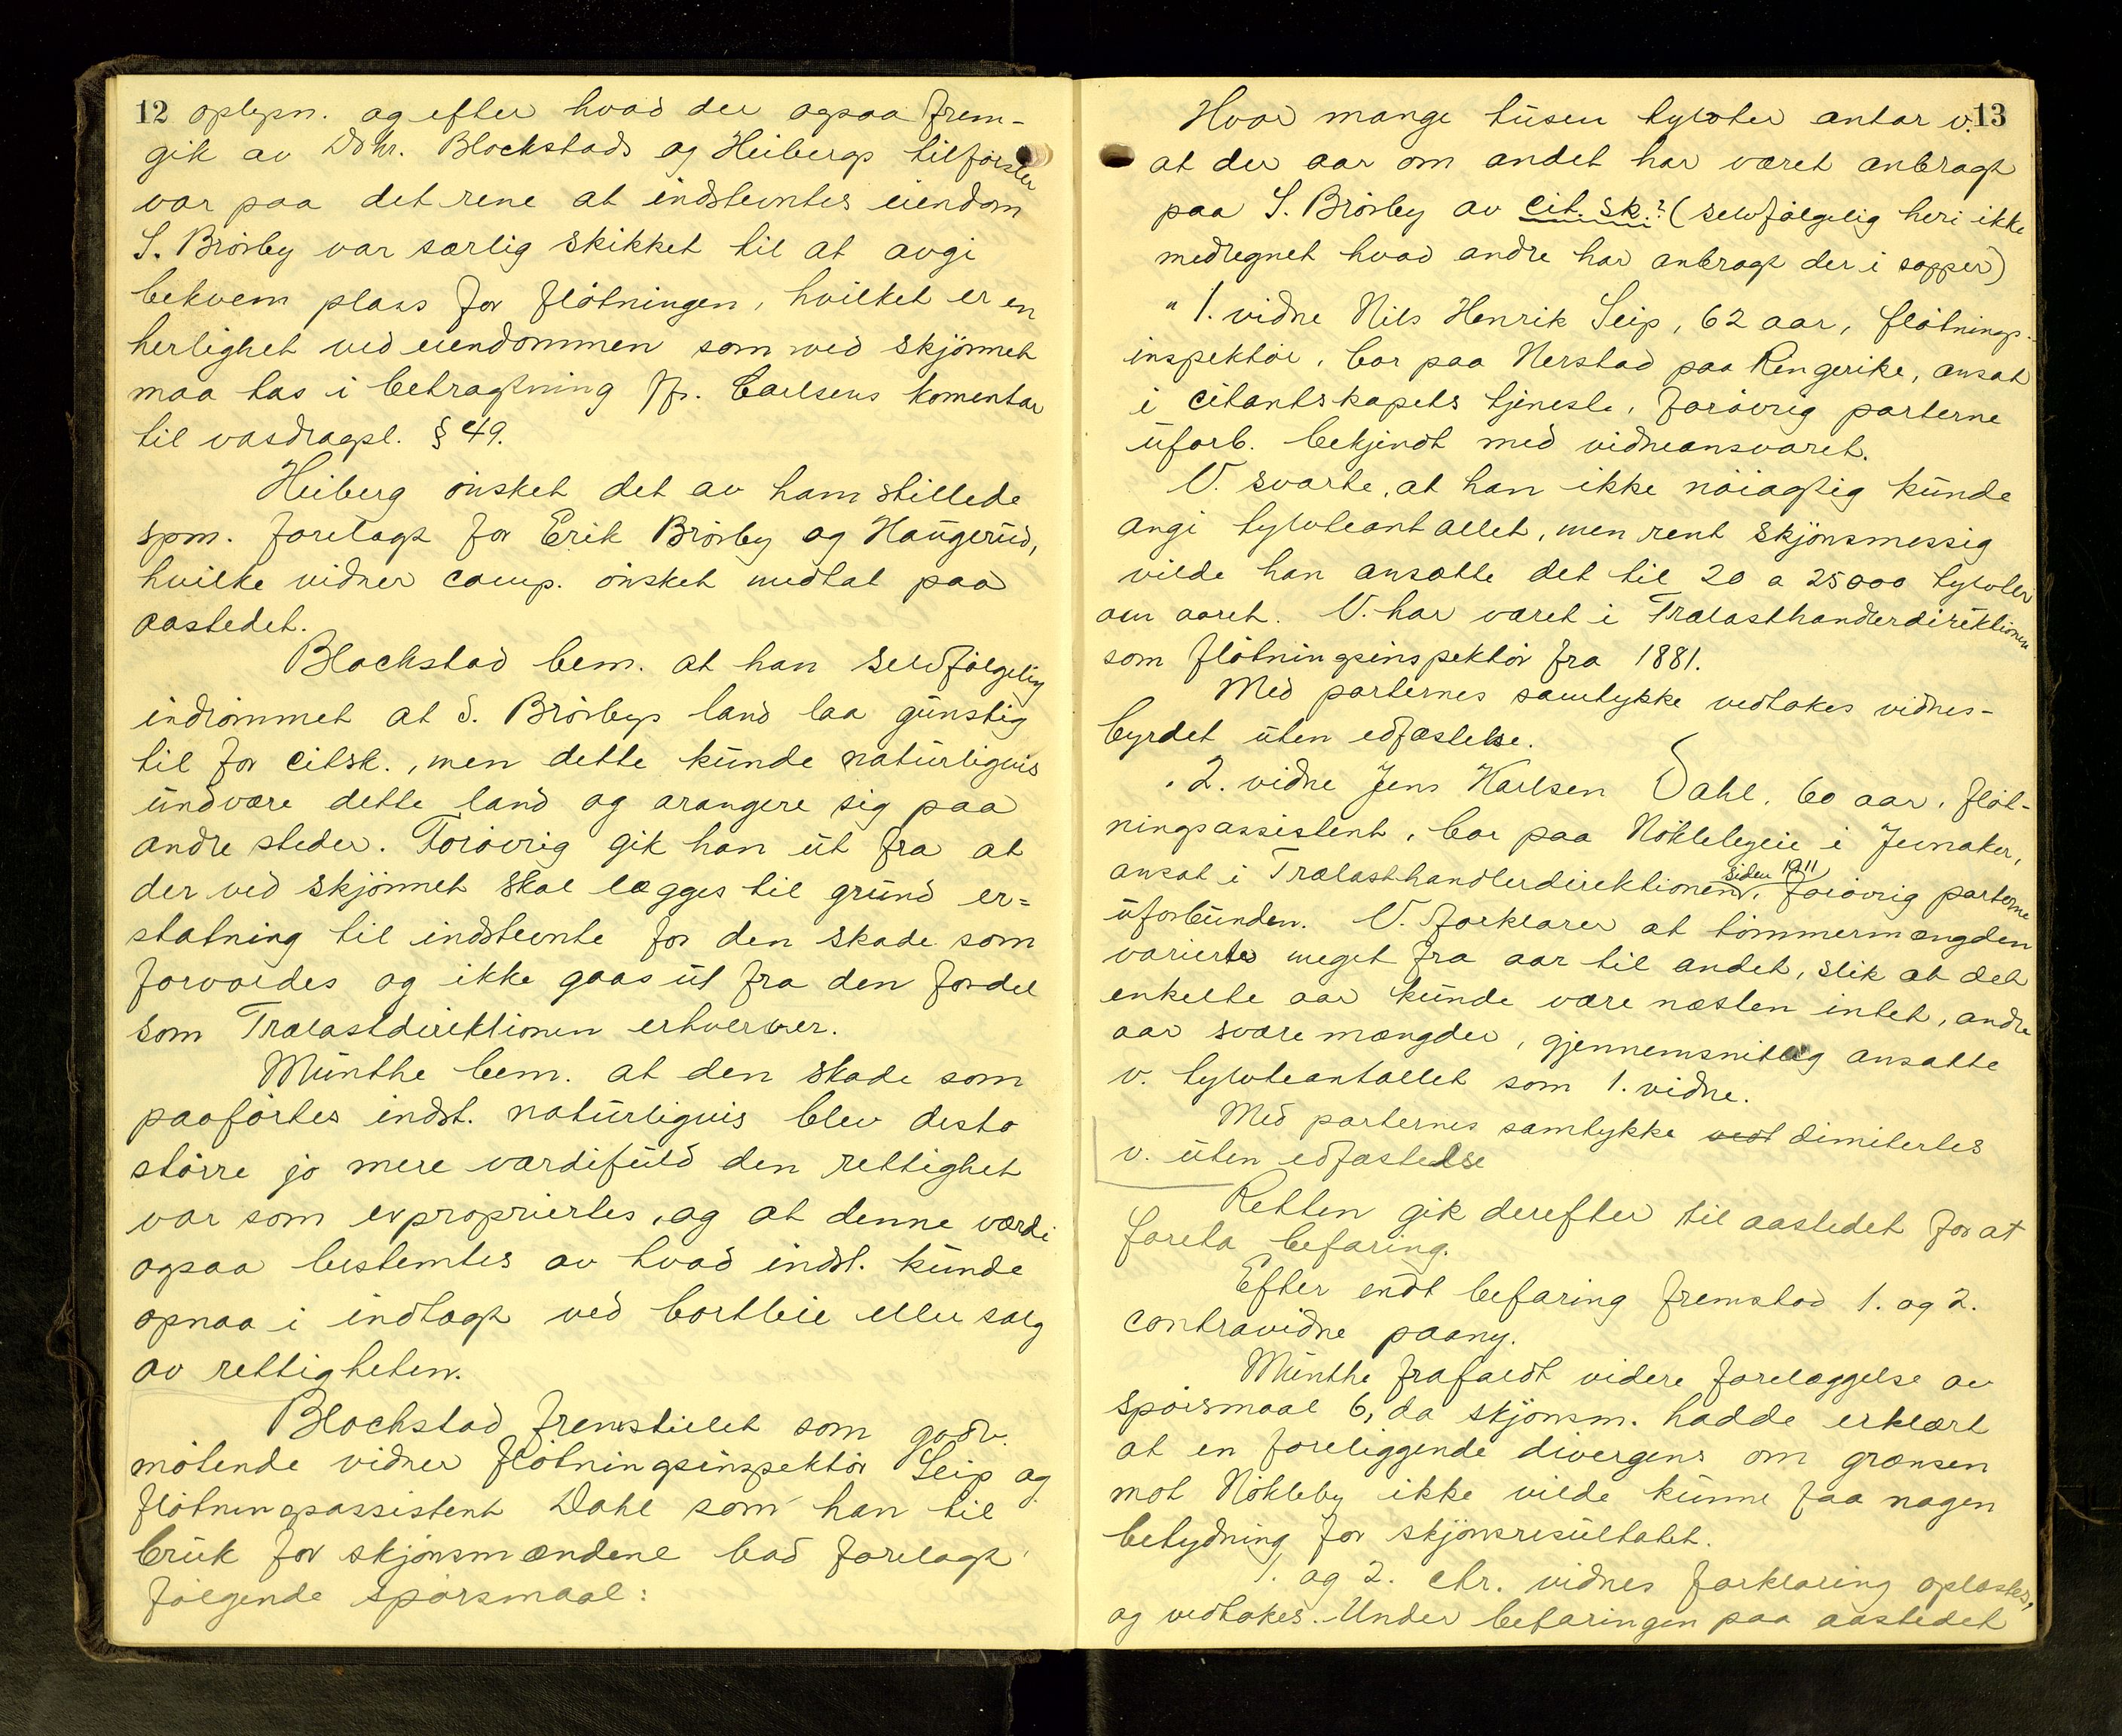 12 oplysn. og efter hvad der ogsaa frem-
gik av Dhr. Blockstads og Heibergs tilførsler
var paa det rene at indstevntes eiendom
S. Brörby var særlig skikket til at avgi
bekvem plass for flötningen, hvilket er en
herlighet ved eiendommen som ved skjönnet
maa tas i betragtning jfr. Carlsens komentar
til vasdragsl. § 49.
Heiberg önsket det av ham stillede
spm. forelagt for Erik Brörby og Haugerud,
hvilke vidner comp. önsket mottat paa
aastedet.
Blockstad bem. at han selvfölgelig
indrömmet at S. Brörbys land laa gunstig
til for citsk., men dette kunde naturligvis
undvære dette land og arangere sig paa
andre steder. Forövrig gik han ut fra at
der ved skjönnet skal lægges til grund er=
statning til indstevnte for den skade som
forvoldes og ikke gaas ut fra den fordel
som Trælastdirektionen erhverver.
Munthe bem. at den skade som
paaförtes indst. naturligvis blev desto
större jo mere værdifuld den rettighet
var som expropriertes, og at denne værdi
ogsaa bestemtes av hvad indst. kunde
opnaa i indtægt ved bortleie eller salg
av rettigheten.
Blockstad fremstillet som godv.
mötende vidner flötningsinspektör Seip og
flötningsassistent Dahl som han til
bruk for skjönsmændene bad forelagt
fölgende spörsmaal:
13
Hvor mange tusen tylvter antar v.
at der aar om andet har været anbragt
paa S. Brörby av cit.sk.? (selvfölgelig heri ikke
medregnet hvad andre har anbragt der i sopper)
" 1. vidne Nils Henrik Seip, 62 aar, flötnings-
inspektör, bor paa Nerstad paa Ringerike, ansat
i citantskapets tjeneste, forövrig parterne
uforb. bekjendt med vidneansvaret.
V. svarte, at han ikke nöiagtig kunde
angi tylvteantallet, men rent skjönsmessig
vilde han ansætte det til 20 a 25000 tylvter
om aaret. V. har været i Trælasthandlerdirektionen
som flötningsinspektör fra 1881.
Med parternes samtykke vedtokes vidnes-
byrdet uten edfæstelse.
. 2. vidne Jens Karlsen Dahl, 60 aar, flöt-
ningsassistent, bor paa Nöklebyeie i Jevnaker,
siden 1911
ansat i Trælasthandlerdirektionen, forövrig parterne
uforbunden. V. forklarer at tömmermængden
varierte meget fra aar til andet, slik at det
enkelte aar kunde være næsten intet, andre
aar svære mængder, gjennemsnitlig ansatte
v. tylvteantallet som 1. vidne.
Med parternes samtykke vedt dimitertes
v. uten edfæstelse
Retten gik derefter til aastedet for at
foreta befaring.
Efter endt befaring fremstod 1. og 2.
contravidne paany.
Munthe frafaldt videre forelæggelse av
spörsmaal 6, da skjönsm. hadde erklært
at en foreliggende divergens om grænsen
mot Nökleby ikke vilde kunne faa nogen
betydning for skjönsresultatet.
1. og 2. ctr. vidnes forklaring oplæstes,
og vedtokes. Under befaringen paa aastedet